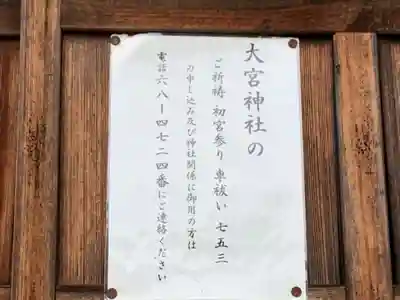 大宮神社の
ご祈祷 初宮参り 車祓い 七五三
の申し込み及び神社関係に御用の方は
電話六八ー四七二四番にご連絡ください